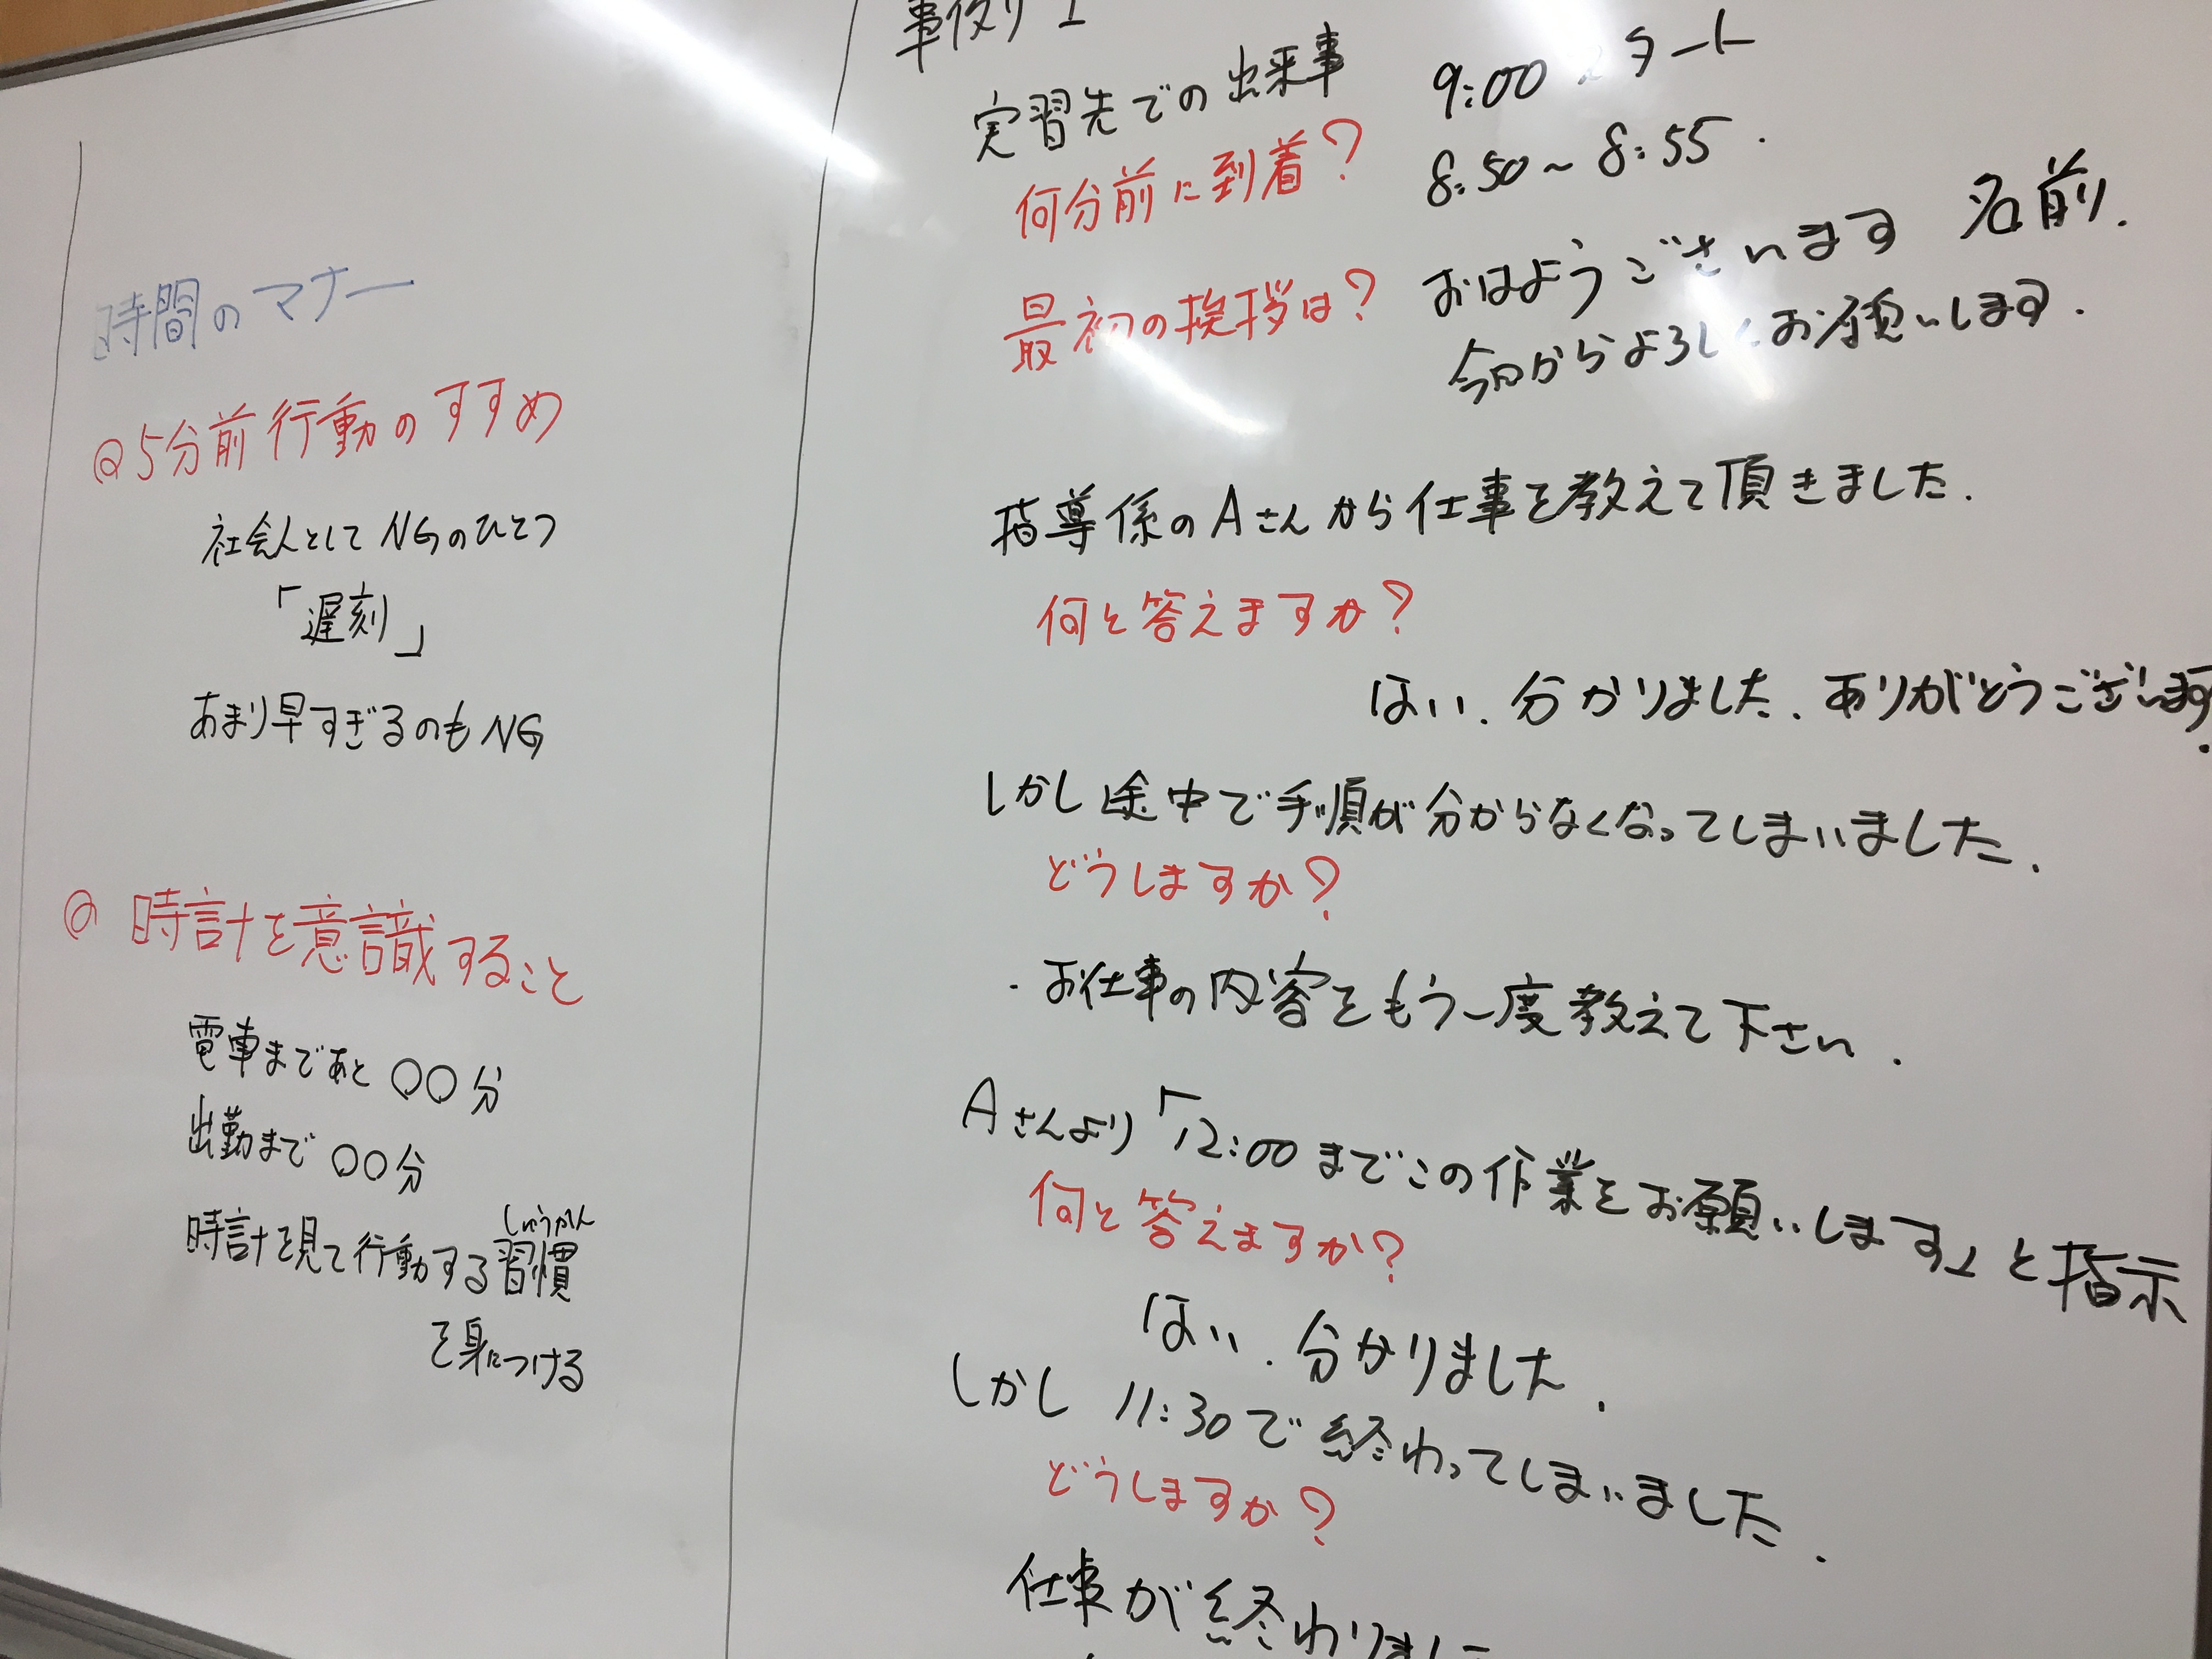 時間のマナー
@5分前行動のすすめ
社会人としてNGのひとつ
「遅刻」
あまり早すぎるのもNG
@ 時計を意識すること
電車まであと 〇〇分
出勤まで 〇〇分
しゅうかん
時計を見て行動する習慣
を身につける
事例 1
実習先での出来事 9:00 スタート
何分前に到着? 8:50~8:55.
最初の挨拶は? おはようございます 名前.
今日からよろしくお願いします.
指導係のAさんから仕事を教えて頂きました.
何と答えますか?
はい. 分かりました. ありがとうございます.
しかし途中で手順が分からなくなってしまいました.
どうしますか?
・お仕事の内容をもう一度教えて下さい.
Aさんより「12:00までこの作業をお願いします」と指示
何と答えますか?
はい. 分かりました.
しかし 11:30で終わってしまいました.
どうしますか?
仕事が終わりました